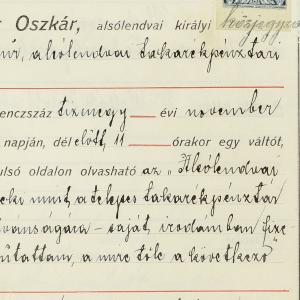 r Oszkár, alsólendvai királyi közjegyző
úr, a lendvai takarékpénztári
enczszáz tizenegy évi november
napján, dél előtt 11 órakor egy váltót,
ulsó oldalon olvasható az „Alsólendvai
neki mint a telepes takarékpénztár
vánságára - saját irodámban fize
mutattam, a mire tőle a következő